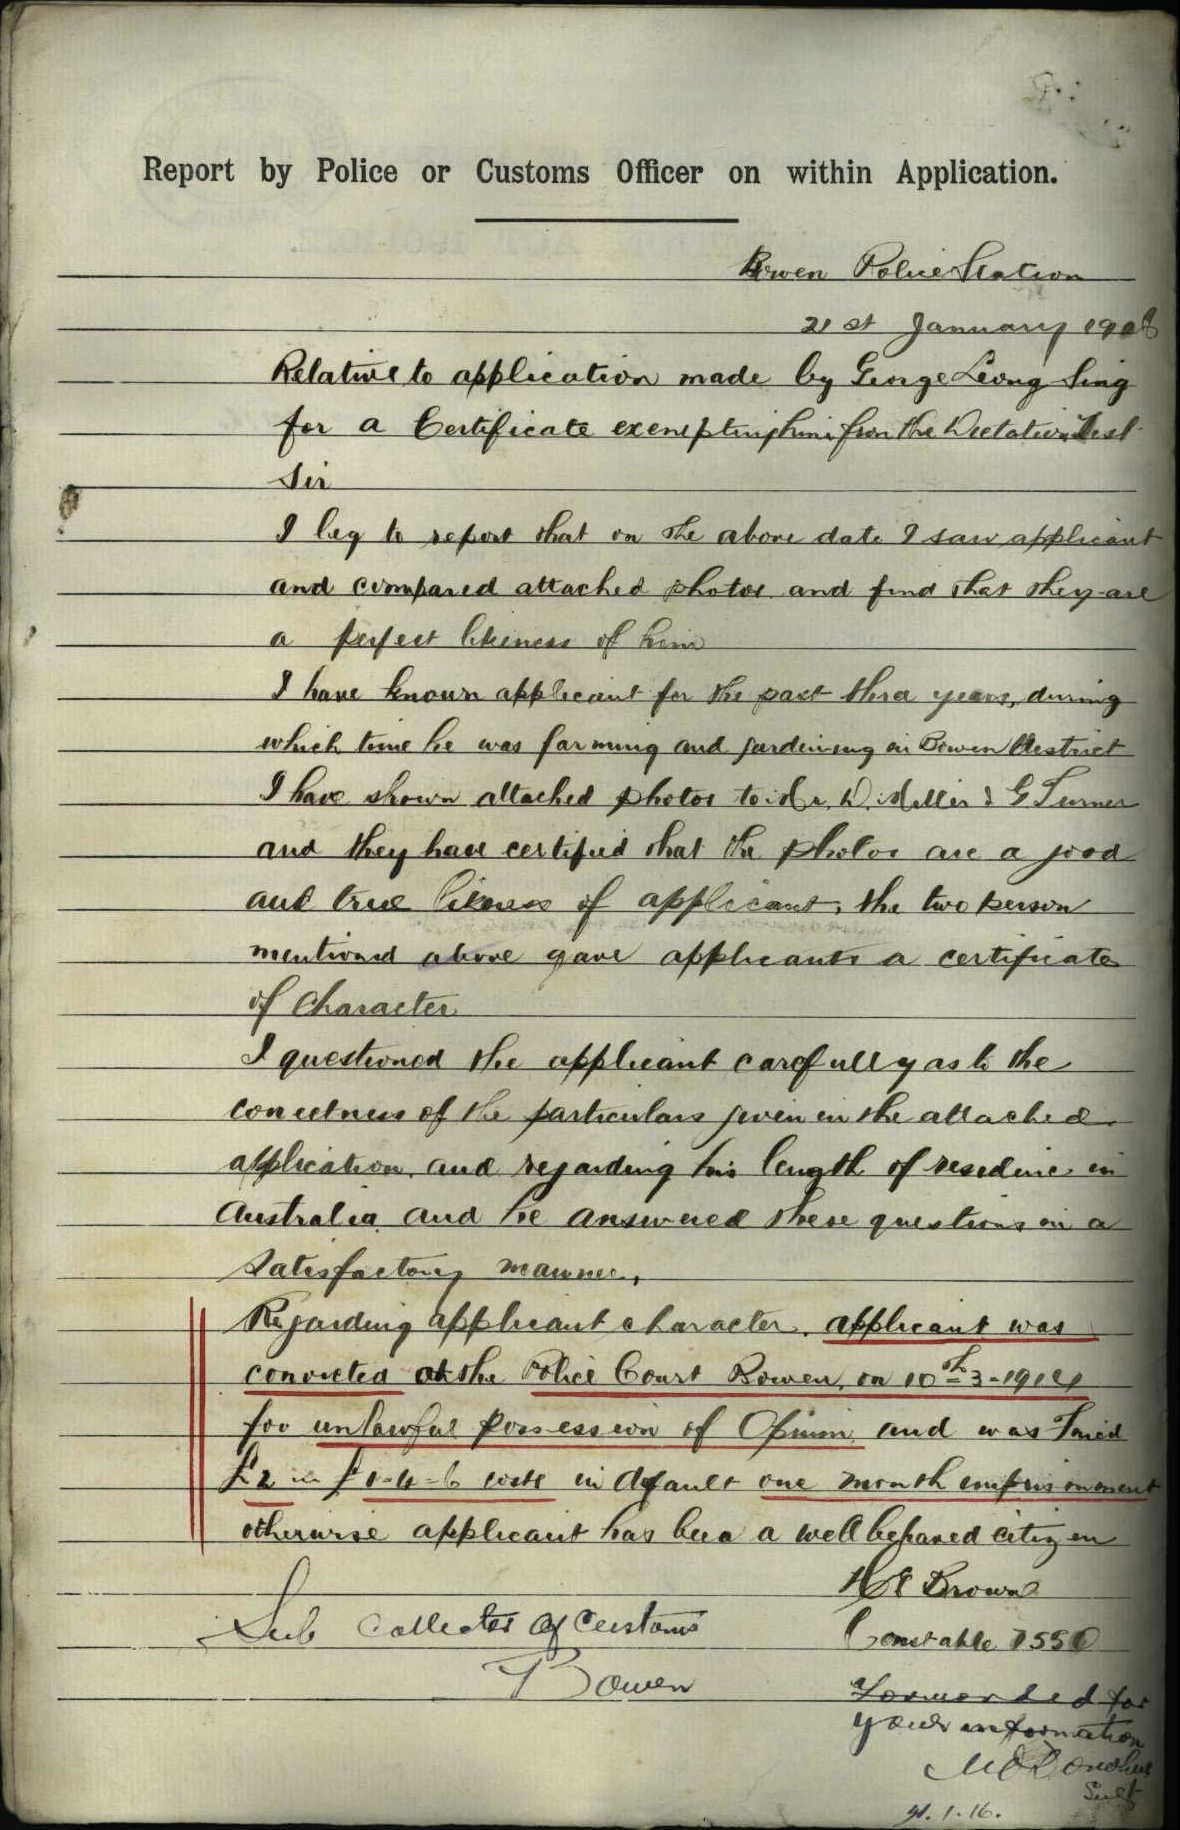 Report by Police or Customs Officer on within Application.
Bowen Police Station
21st January 191
Relative to application made by George Leong Sing
for a Certificate exempting him from the Dictation Test
Sir
I beg to report that on the above date I saw applicant
and compared attached photos and find that they are
a perfect likeness of him
I have known applicant for the past three years, during
which time he was farming and gardening in Bowen District
I have shown attached photos to Mr. D. Miller & G Turner
and they have certified that the photos are a good
and true likeness of applicant, the two person
mentioned above gave applicants a certificate
of Character
I questioned the applicant carefully as to the
corectness of the particulars given in the attached
application. and regarding his length of residence in
Australia and he answered these questions in a
satisfactory manner,
Regarding applicant character. applicant was
convicted at the Police Court Bowen, on 10th-3-1914
for unlawful possession of Opium and was Fined
£2 in £1-4-6 costs in default one month imprisonment
otherwise applicant has been a well behaved citizen
Brown
Constable
Sub Collector of Customs
Bowen
Forwarded for
your information
M O'Donohue
21.1.16.